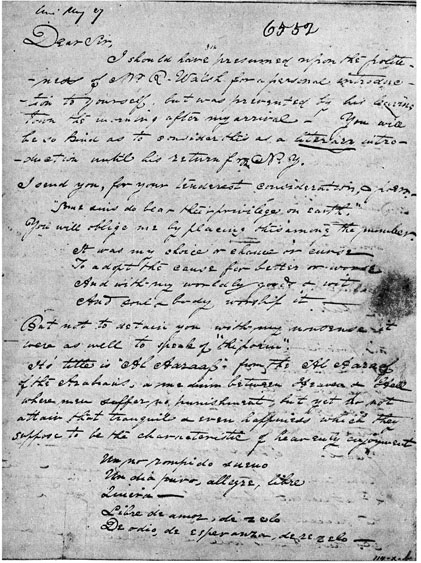 May 27
6552
Dear Sir,
I should have presumed upon the polite-
-ness of Mr R. Walsh for a personal introduc-
-tion to yourself, but was prevented by his leaving
town the morning after my arrival — You will
be so kind as to consider this as a literary intro-
-duction until his return from N.Y.
I send you, for your tenderest consideration, a poem—
"Some sins do bear their privilege on earth."
You will oblige me by placing this among the number—
It was my choice or chance or curse
To adopt the cause for better or worse
And with my worldly goods & wit
And soul & body worship it —
But not to detain you with my nonsense it
were as well to speak of "the poem".
Its title is "Al Aaraaf" — from the Al Aaraaf
of the Arabians, a medium between Heaven & Hell
where men suffer no punishment, but yet do not
attain that tranquil & even happiness which they
suppose to be the characteristic of heavenly enjoyment
Un no rompido sueno
Un dia puro, allegre, libre
Quiera —
Libre de amor, de zelo
De odio, de esperanza, de rezelo —